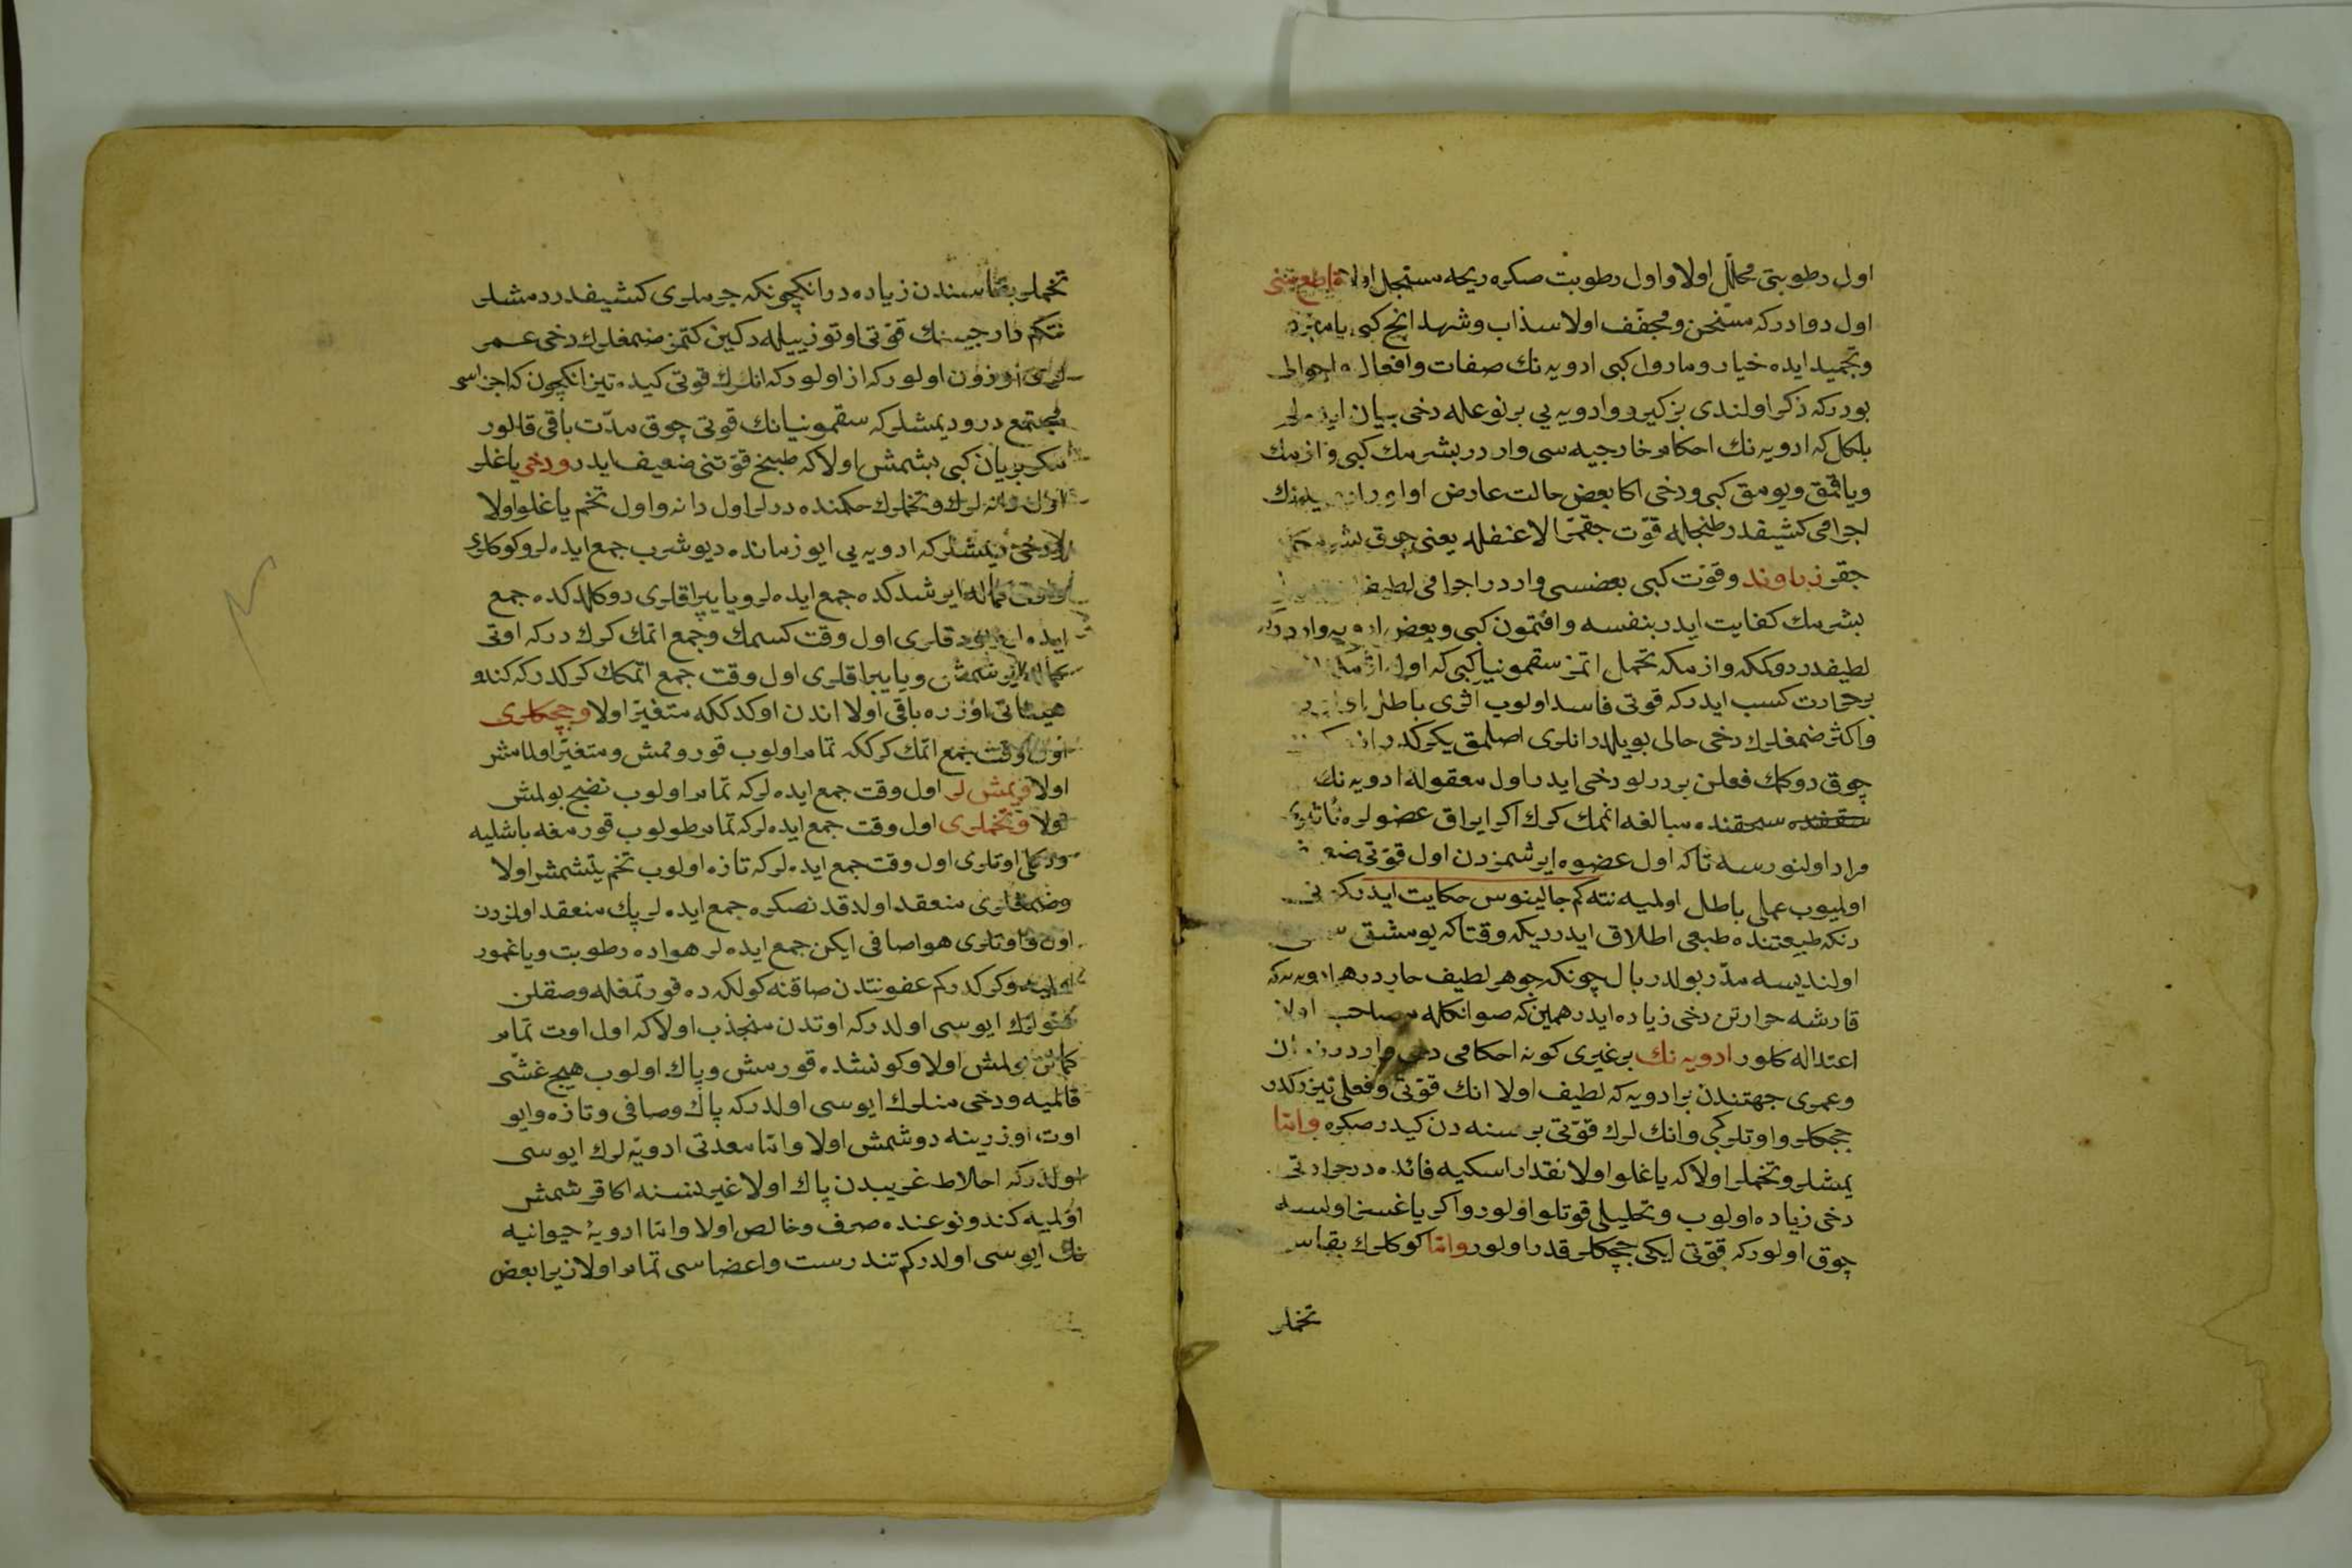 اول رطوبتی محلّل اولا و اول رطوبت صکره ریحه مستحیل اولا قاطع منی
اول دوادرکه مسخّن و مجفّف اولا سذاب و شهدانج کبی یا مبرّد
و تجمید ایده خیار و مارول کبی ادویه نك صفات و افعال و احوالی
بودرکه ذکر اولندی بز کیرو ادویه یی بر نوعله دخی بیان ایده لم
بلکل که ادویه نك احکام خارجیه سی واردر بشرمك کبی و ازمك
و یاقمق و یومق کبی و دخی اکا بعض حالت عارض اولور
اجرامی کشیفدر طبخله قوّت چقمز الا عنفله یعنی چوق
چقر زراوند و قوّت کبی بعضسی واردر اجرامی لطیف
بشرمك کفایت ایدر بنفسه و افتمون کبی و بعض ادویه واردرکه
لطیفدر دوککه و ازمکه تحمل اتمز سقمونیا کبی که اول
بر حرارت کسب ایدرکه قوتی فاسد اولوب اثری باطل
و اکثر ضمغلرك دخی حالی بویله در انلری اصلمق یکرکدر
چوق دوکمك فعلن بر درلو دخی ایدر اول معقوله ادویه نك
سحقنده مبالغه اتمك کرك اکر ایراق عضولره تأثیری
مراد اولنورسه تاکه اول عضوه ایرشمزدن اول قوّتی
اولیوب عملی باطل اولمیه نته کم جالینوس حکایت ایدرکه
دنکه طبیعتنده طبعی اطلاق ایدردیکه وقتاکه یومشق
اولندیسه مدرّ بولدر بال چونکه جوهر لطیف حاردر هر ادویه یه که
قارشه حرارتن دخی زیاده ایدر همین که صو انکله مصاحب اولا
اعتداله کلور ادویه نك بر غیری کونه احکامی دخی واردر
و عمری جهتندن بر ادویه که لطیف اولا انك قوّتی و فعلی تیز کیدر
چچکلر و اوتلر کبی و انك لرك قوّتی بر سنه دن کیدر صکره و امّا
یمشلر و تخملر اولا که یاغلو اولا نقدار اسکیه فائده در حرارتی
دخی زیاده اولوب و تحلیلی قوتلو اولور و اکر یاغسز اولسه
چوق اولورکه قوّتی ایکی چچکلر قدر اولور و امّا کوکلرك بقاسی
تخملر
تخملر بقاسندن زیاده در انکچونکه جرملری کشیفدر دمشلر
نتکم دارچینك قوّتی اوتوز ییله دکین کتمز ضمغلرك دخی عمر
لری اوزون اولورکه از اولورکه انلرك قوتی کیده تیز انکچون که اجزاسی
مجتمع در و دیمشلرکه سقمونیانك قوتی چوق مدّت باقی قالور
مکر بریان کبی بشمش اولا که طبیخ قوّتنی ضعیف ایدر و دخی یاغلر
اول دانه لرك و تخملرك حکمنده در لر اول دانه و اول تخم یاغلو اولا
لر دخی دیمشلرکه ادویه یی ایو زمانده دیوشرب جمع ایده لر و کوکلرك
وقت کماله ایرشدکده جمع ایده لر و یا یپراقلری دوکلدکده جمع
ایده لر و چبوقلری اول وقت کسمك و جمع اتمك کرك درکه اوتی
کماله ایرشمش و یا یپراقلری اول وقت جمع اتمکك کرکدرکه کندو
هیئاتی اوزره باقی اولا اندن اوکدککه متغیّر اولا و چچکلری
اول وقت جمع اتمك کرککه تمام اولوب قورومش و متغیّر اولمامش
اولا و یمش لر اول وقت جمع ایده لرکه تمام اولوب نضج بولمش
اولا و تخملری اول وقت جمع ایده لرکه تمام طولوب قورمغه باشلیه
و دخی اوتلری اول وقت جمع ایده لرکه تازه اولوب تخم یتشمش اولا
و ضمغلری منعقد اولدقدنصکره جمع ایده لر پك منعقد اولمزدن
اول و اوتلری هوا صافی ایکن جمع ایده لر هواده رطوبت و یاغمور
اولمیه و کرکدرکم عفونتدن صاقنه کولکه ده قورتمغله و صقلن
اوتك ایوسی اولدرکه اوتدن منجذب اولا که اول اوت تمام
کمالن بولمش اولا و کونشده قورمش و پاك اولوب هیچ غشّی
قالمیه و دخی منلرك ایوسی اولدرکه پاك و صافی و تازه و ایو
اوت اوزرینه دوشمش اولا و امّا معدنی ادویّه لرك ایوسی
اولدرکه اخلاط غریبدن پاك اولا غیر نسنه اکا قرشمش
اولمیه کندو نوعنده صرف و خالص اولا و امّا ادویۀ حیوانیه
نك ایوسی اولدرکم تندرست و اعضاسی تمام اولا زیرا بعض